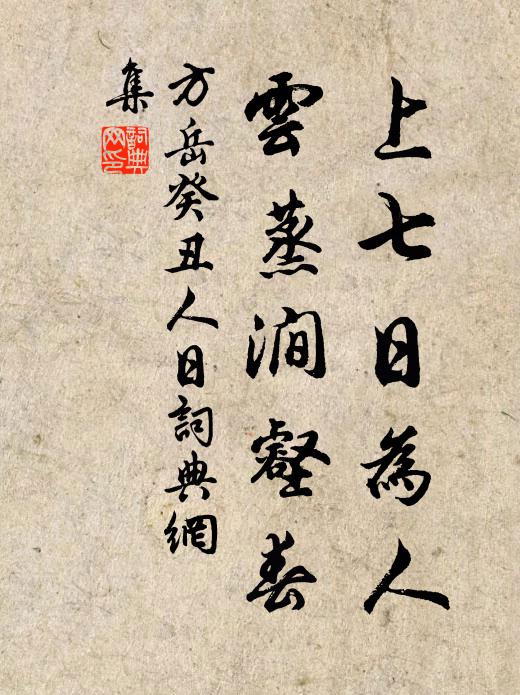 上七日為人
雲蒸澗壑春
方岳癸丑人日詞典網
集
詞典
网印